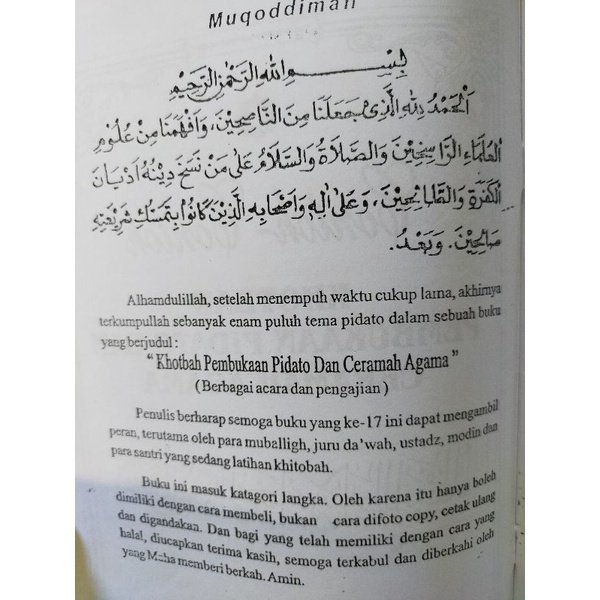 Muqoddimah
بِسْمِ اللهِ الرَّحْمٰنِ الرَّحِيْمِ
اَلْحَمْدُ لِلّٰهِ الَّذِى جَعَلَنَا مِنَ النَّاصِحِيْنَ، وَافْهَمَنَا مِنْ عُلُوْمِ
الْعُلَمَاءِ الرَّاسِخِيْنَ وَالصَّلَاةُ وَالسَّلَامُ عَلَى مَنْ نَسَخَ دِيْنُهُ اَدْيَانَ
الْكَفَرَةِ وَالطَّالِحِيْنَ، وَعَلَى اٰلِهِ وَاَصْحَابِهِ الَّذِيْنَ كَانُوْا بِتَمَسُّكِ شَرِيْعَتِهِ
صَالِحِيْنَ. وَبَعْدُ.
Alhamdulillah, setelah menempuh waktu cukup lama, akhirnya
terkumpullah sebanyak enam puluh tema pidato dalam sebuah buku
yang berjudul :
“ Khotbah Pembukaan Pidato Dan Ceramah Agama ”
( Berbagai acara dan pengajian )
Penulis berharap semoga buku yang ke-17 ini dapat mengambil
peran, terutama oleh para muballigh, juru da'wah, ustadz, modin dan
para santri yang sedang latihan khitobah.
Buku ini masuk katagori langka. Oleh karena itu hanya boleh
dimiliki dengan cara membeli, bukan cara difoto copy, cetak ulang
dan digandakan. Dan bagi yang telah memiliki dengan cara yang
halal, diucapkan terima kasih, semoga terkabul dan diberkahi oleh
yang Maha memberi berkah. Amin.